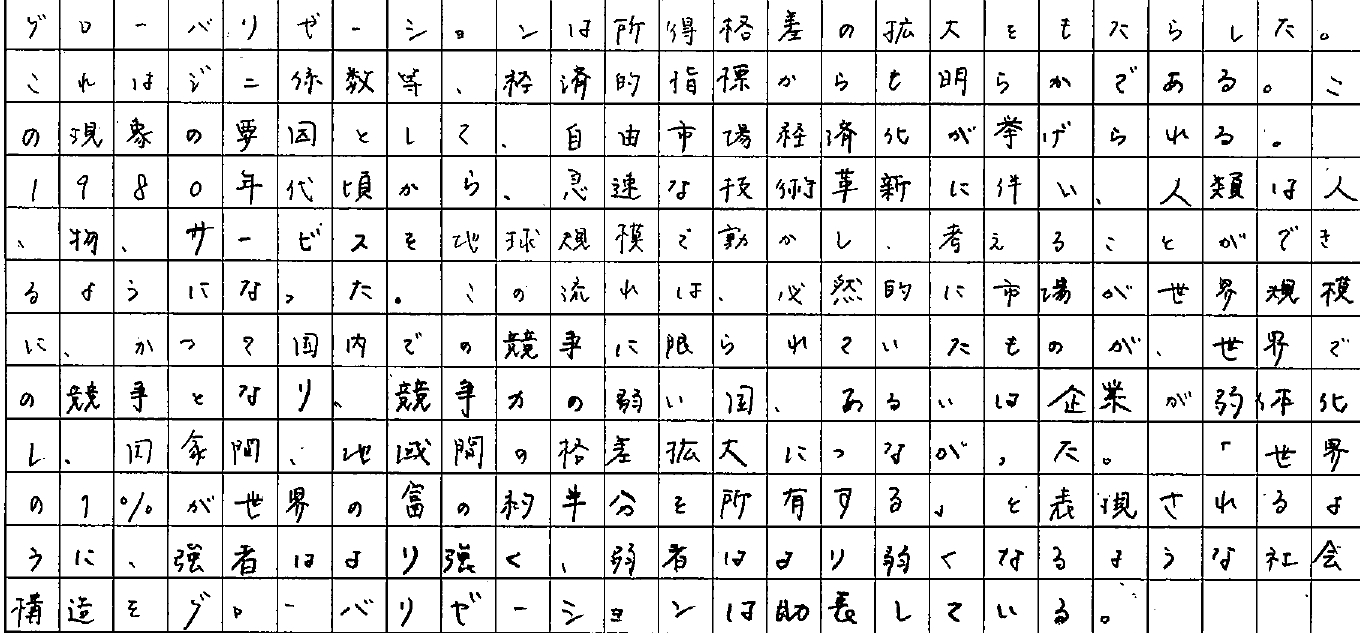 グローバリゼーションは所得格差の拡大をもたらした。
これはジニ係数等、経済的指標からも明らかである。こ
の現象の要因として、自由市場経済化が挙げられる。
1980年代頃から、急速な技術革新に伴い、人類は人
、物、サービスを地球規模で動かし、考えることができ
るようになった。この流れは、必然的に市場が世界規模
に、かつて国内での競争に限られていたものが、世界で
の競争となり、競争力の弱い国、あるいは企業が弱体化
し、国家間、地域間の格差拡大につながった。「世界
の1%が世界の富の約半分を所有する」と表現されるよ
うに、強者はより強く、弱者はより弱くなるような社会
構造をグローバリゼーションは助長している。